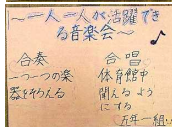 ～一人一人が活躍でき
る音楽会～
合奏
一つ一つの楽
器をそろえる
合唱
体育館中
聞えるよう
にする
五年一組